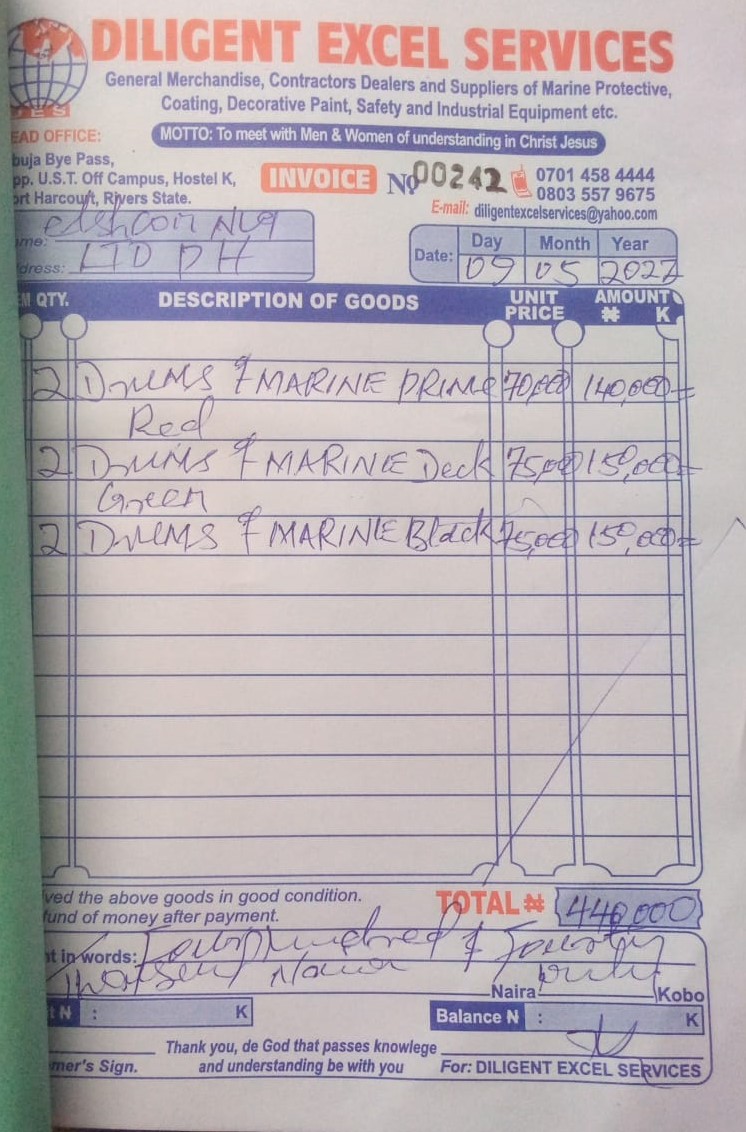 DILIGENT EXCEL SERVICES
General Merchandise, Contractors Dealers and Suppliers of Marine Protective,
Coating, Decorative Paint, Safety and Industrial Equipment etc.
EAD OFFICE:
MOTTO: To meet with Men & Women of understanding in Christ Jesus
buja Bye Pass,
pp. U.S.T. Off Campus, Hostel K,
ort Harcourt, Rivers State.
INVOICE
No 00242
0701 458 4444
0803 557 9675
E-mail: diligentexcelservices@yahoo.com
me:
dress: LTD PH
Date: Day Month Year
09 05 2022
M QTY. DESCRIPTION OF GOODS UNIT PRICE AMOUNT ₦ K
2 Drums of MARINE PRIME 70,000 140,000=
Red
2 Drums of MARINE Deck 75,000 150,000=
Green
2 Drums of MARINE Black 75,000 150,000=
ved the above goods in good condition.
fund of money after payment.
TOTAL ₦ 440,000
nt in words: Four Hundred & Fourty
thousand Naira only
Naira Kobo
t ₦ : K
Balance ₦ : K
Thank you, de God that passes knowlege
and understanding be with you
mer's Sign.
For: DILIGENT EXCEL SERVICES